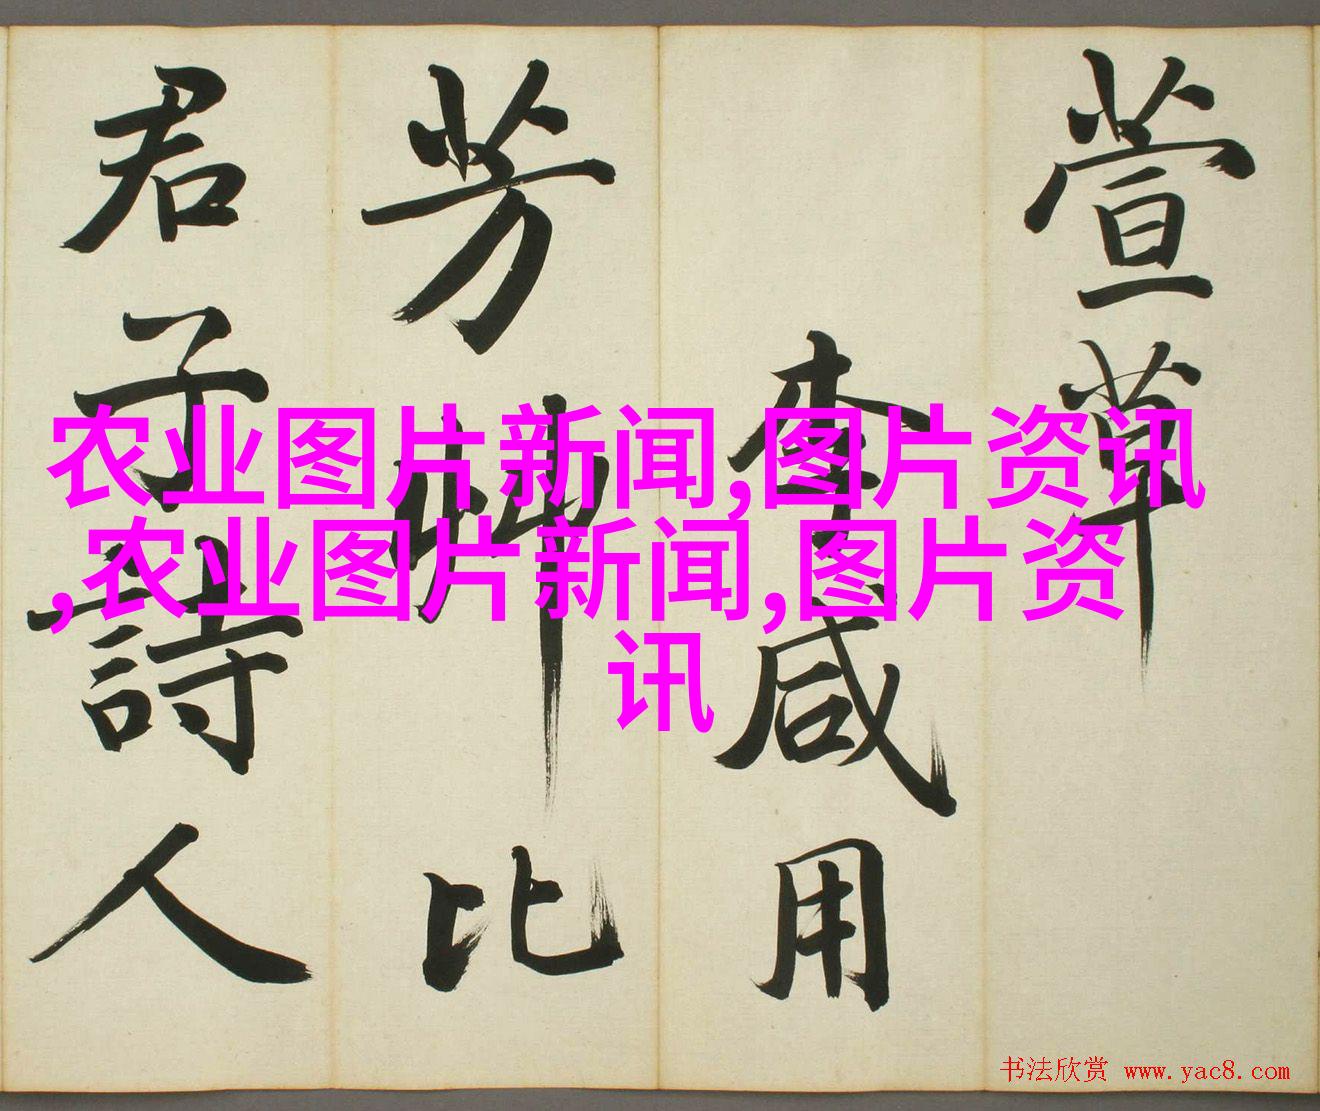 萱草
李咸用
芳艸比
君子詩人
农业图片新闻,图片资讯
,农业图片新闻,图片资
讯
书法欣赏 www.yac8.com